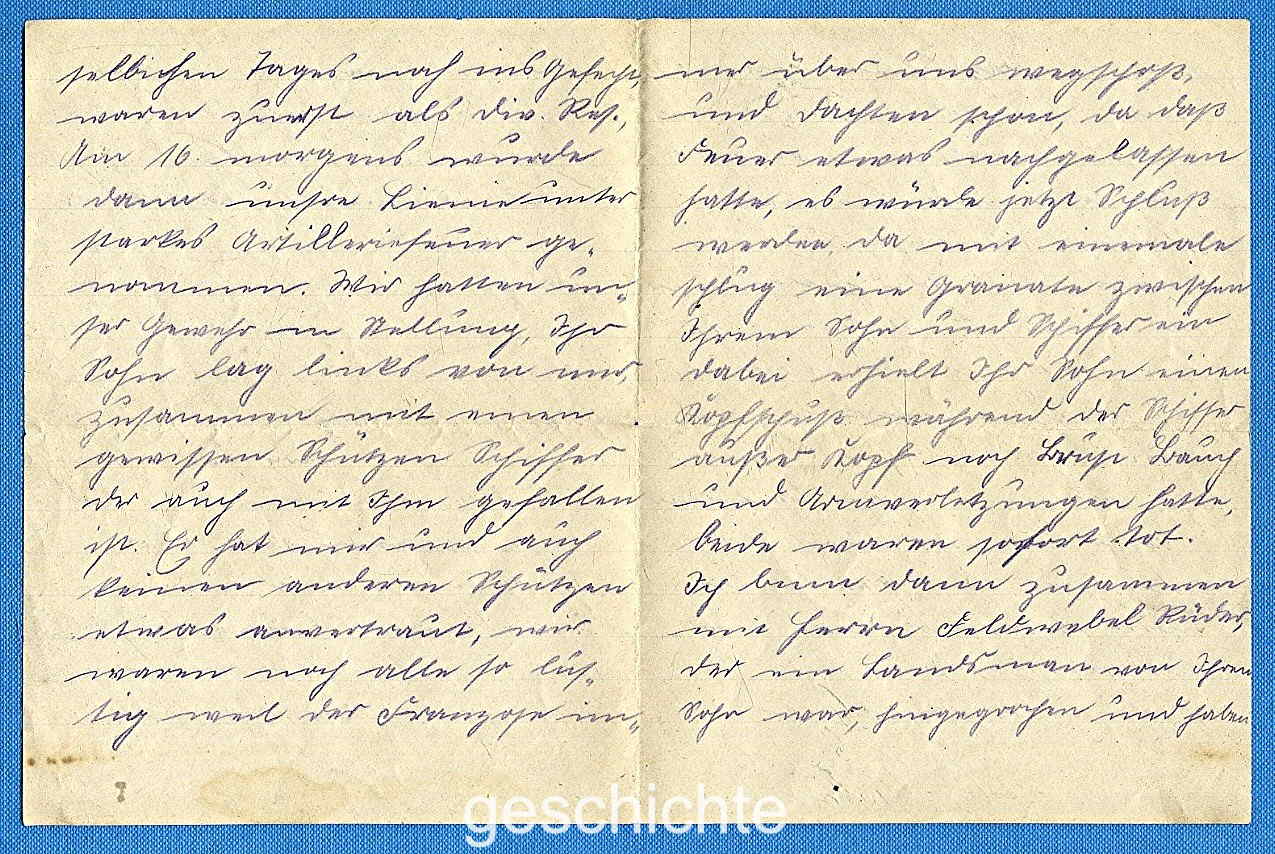 selbichen Tages noch ins Gefecht,
waren zuerst als Div. Res.,
Am 16. morgens wurde
dann unsre Lienie unter
starkes Artilleriefeuer ge-
nommen. Wir hatten un-
ser Gewehr in Stellung, Ihr
Sohn lag links von mir,
zusammen mit einen
gewissen Schützen Schiffer
der auch mit Ihm gefallen
ist. Er hat mir und auch
keinen anderen Schützen
etwas anvertraut, wir
waren noch alle so lus-
tig weil der Franzose im-
mer über uns wegschoß,
und dachten schon, da daß
Feuer etwas nachgelassen
hatte, es würde jetzt Schluß
werden, da mit einemale
schlug eine Granate zwischen
Ihrem Sohn und Schiffer ein
dabei erhielt Ihr Sohn einen
Kopfschuß während der Schiffer
außer Kopf noch Brust Bauch
und Armverletzungen hatte,
beide waren sofort tot.
Ich binn dann zusammen
mit Herrn Feldwebel Rüder,
der ein Landsman von Ihren
Sohn war, hingegrochen und haben
geschichte